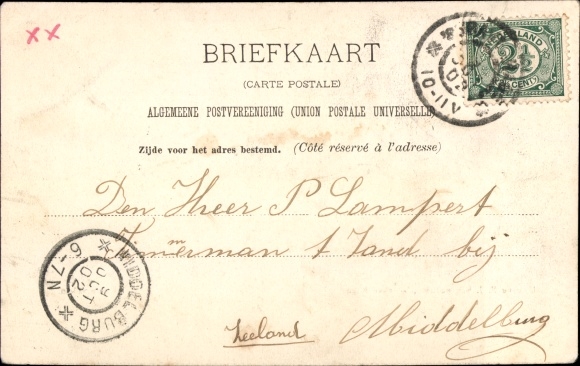 XX
BRIEFKAART
(CARTE POSTALE)
ALGEMEENE POSTVEREENIGING (UNION POSTALE UNIVERSELLE)
Zijde voor het adres bestemd. (Côté réservé à l'adresse)
2½
CENT
VII-10
Den Heer P Lampert
Timmerman t Zand bij
Zeeland Middelburg
MIDDELBURG
OCT
02
6-7N